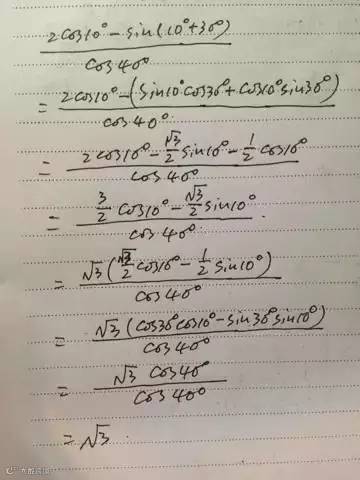 2cos10° - sin(10°+30°) / cos40°
= 2cos10° - (sin10°cos30° + cos10°sin30°) / cos40°
= 2cos10° - √3/2 sin10° - 1/2 cos10° / cos40°
= 3/2 cos10° - √3/2 sin10° / cos40°
= √3(√3/2 cos10° - 1/2 sin10°) / cos40°
= √3(cos30°cos10° - sin30°sin10°) / cos40°
= √3 cos40° / cos40°
= √3